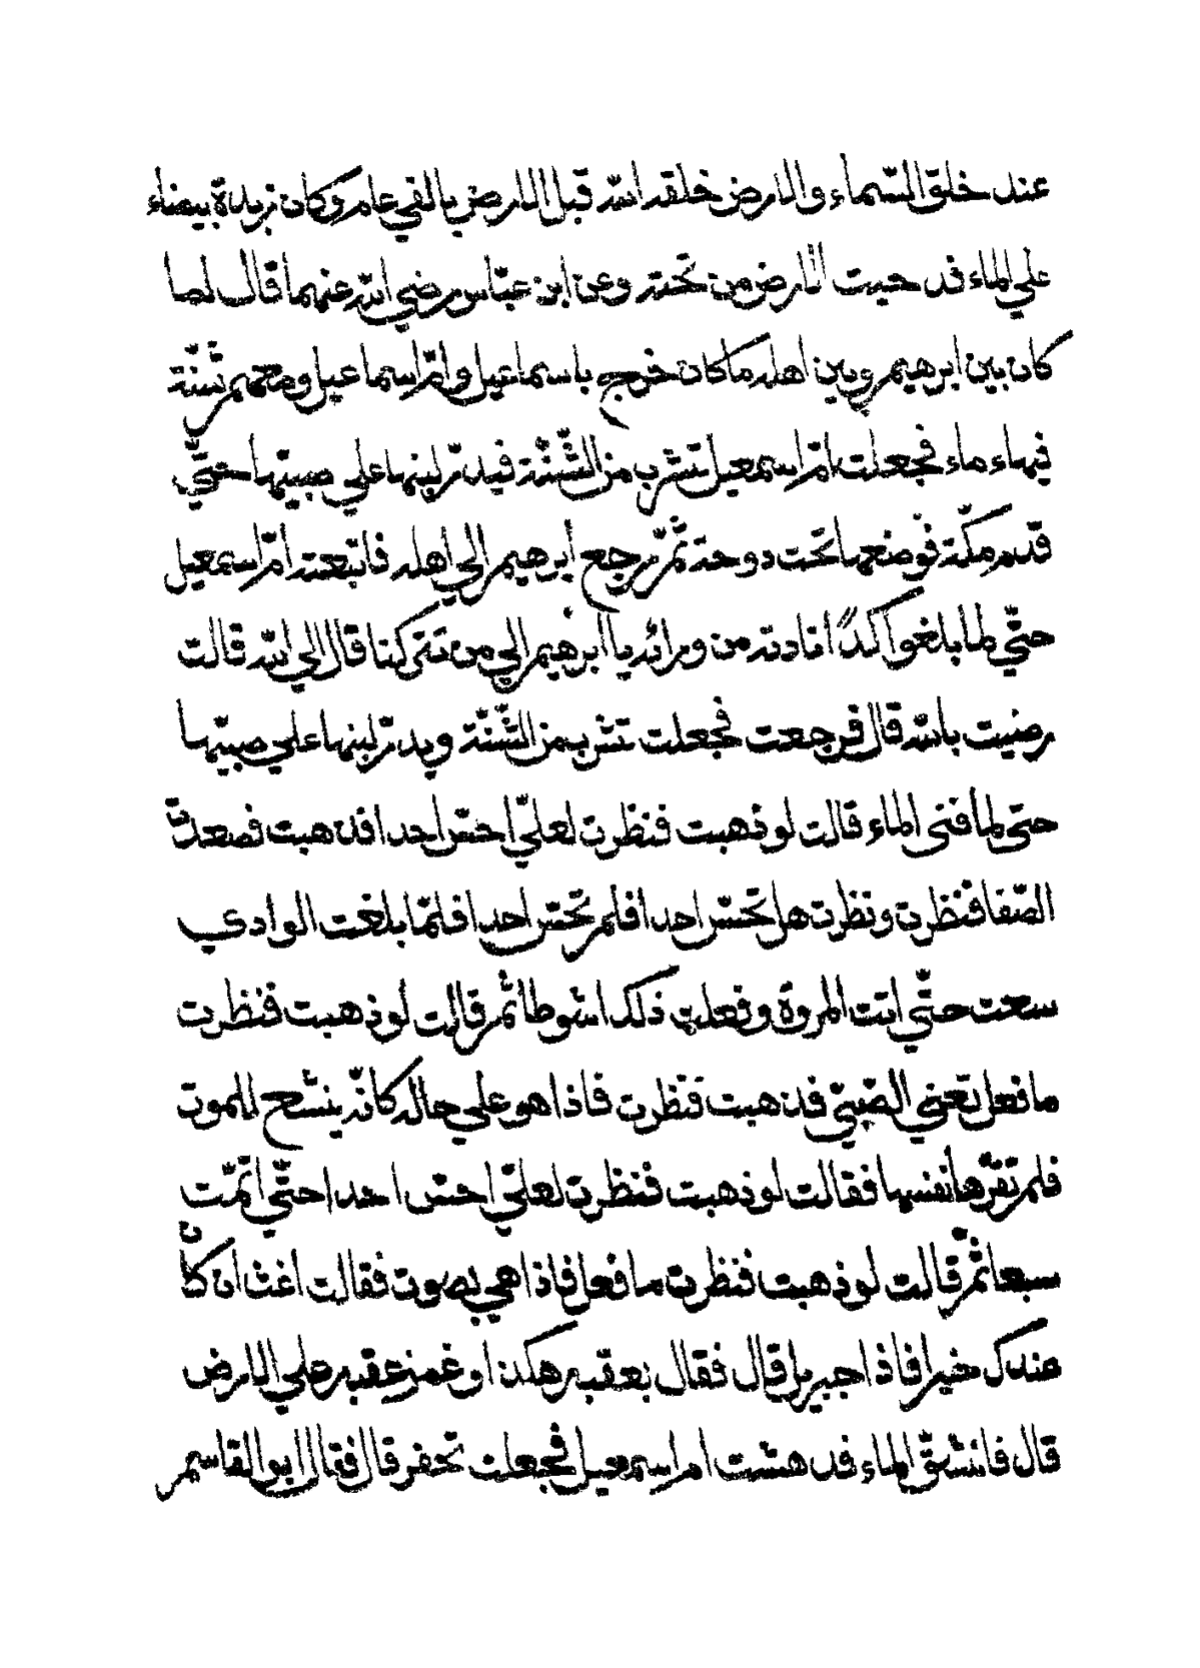 عند خلق السّماء والارض خلقه الله قبل الارض بالفي عام وكان زبدة بيضاء
علي الماء فدحيت الارض من تحته وعن ابن عبّاس رضي الله عنهما قال لما
كان بين ابرهيم وبين اهله ما كان خرج باسماعيل وامّ اسماعيل ومعهم شنّة
فيها ماء فجعلت امّ اسمعيل تشرب من الشّنّة فيدرّ لبنها علي صبيّها حتّي
قدم مكّة فوضعها تحت دوحة ثمّ رجع ابرهيم الي اهله فاتبعته امّ اسمعيل
حتّي لما بلغوا كداً نادته من ورائه يا ابرهيم الي من تتركنا قال الي الله قالت
رضيت بالله قال فرجعت فجعلت تشرب من الشّنّة ويدرّ لبنها علي صبيّها
حتى لما فنى الماء قالت لو ذهبت فنظرت لعلّي احسّ احدا فذهبت فصعدت
الصّفا فنظرت ونظرت هل تحسّ احدا فلم تحسّ احدا فلمّا بلغت الوادي
سعت حتّي اتت المروة وفعلت ذلك اشواطا ثم قالت لو ذهبت فنظرت
ما فعل تعني الصّبيّ فذهبت فنظرت فاذا هو علي حاله كانّه ينشح للموت
فلم تقرّها نفسها فقالت لو ذهبت فنظرت لعلّي احسّ احدا حتّي اتمّت
سبعا ثمّ قالت لو ذهبت فنظرت ما فعل فاذا هي بصوت فقالت اغث ان كان
عندك خير فاذا جبريل قال فقال بعقبه هكذا وغمز عقبه علي الارض
قال فانشقّ الماء فدهشت ام اسمعيل فجعلت تحفر قال فقال ابو القاسم